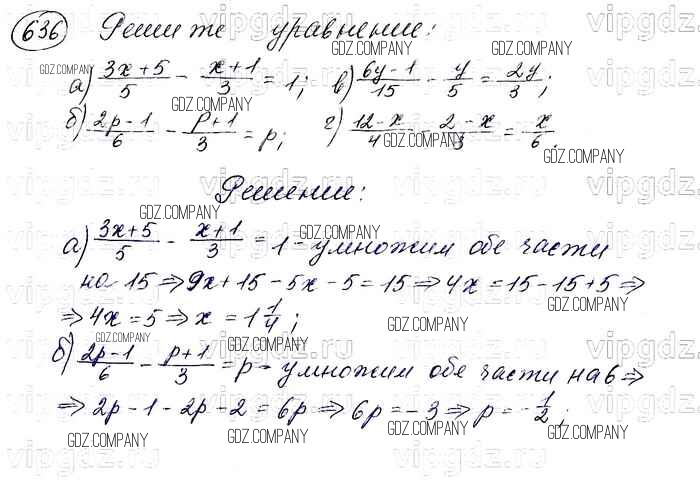 636 Решите уравнение:
а) (3x+5)/5 - (x+1)/3 = 1; в) (6y-1)/15 - y/5 = 2y/3;
б) (2p-1)/6 - (p+1)/3 = p; г) (12-x)/4 - (2-x)/3 = x/6.
Решение:
а) (3x+5)/5 - (x+1)/3 = 1 - умножим обе части
на 15 ⇒ 9x+15-5x-5=15 ⇒ 4x=15-15+5 ⇒
⇒ 4x=5 ⇒ x = 1 1/4;
б) (2p-1)/6 - (p+1)/3 = p - умножим обе части на 6 ⇒
⇒ 2p-1-2p-2=6p ⇒ 6p=-3 ⇒ p=-1/2;
GDZ.COMPANY
vipgdz.ru